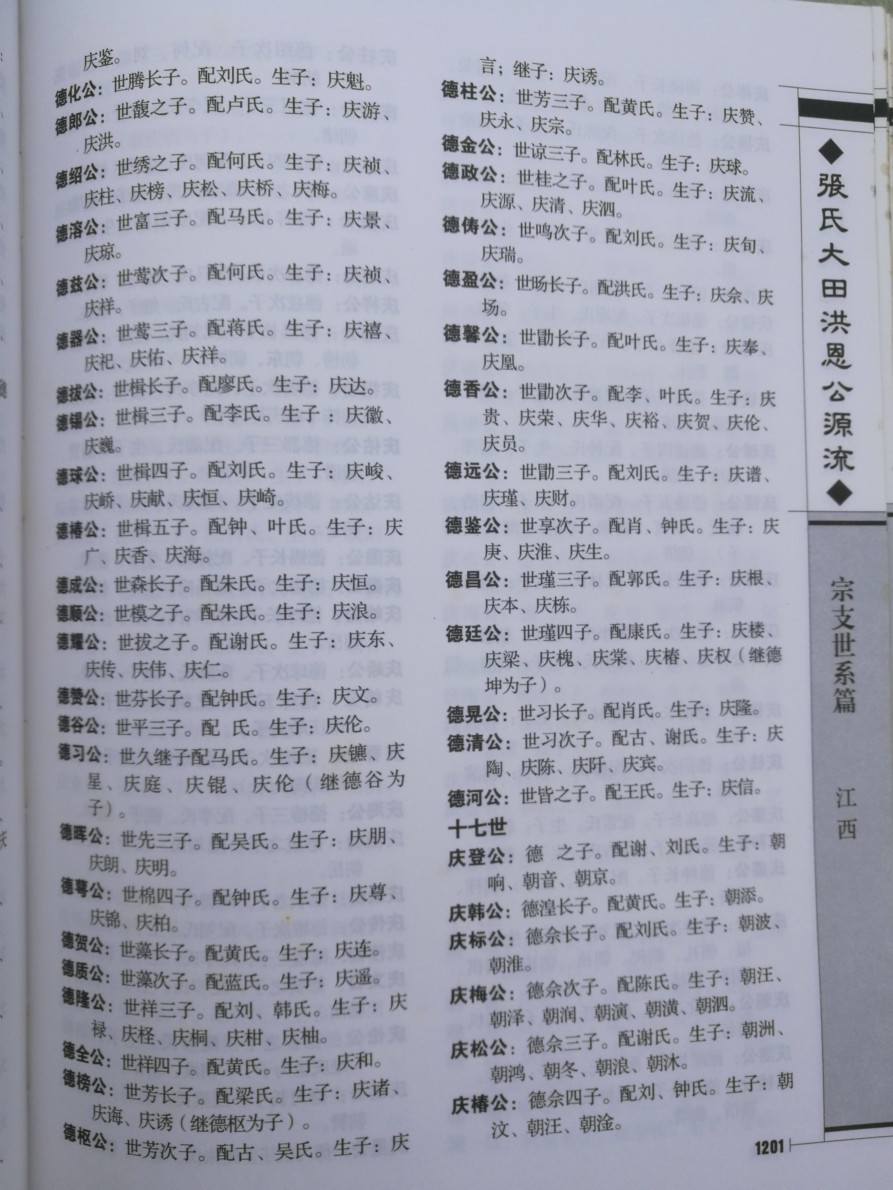 庆鉴。
德化公：世腾长子。配刘氏。生子：庆魁。
德郎公：世馥之子。配卢氏。生子：庆游、
庆洪。
德绍公：世绣之子。配何氏。生子：庆祯、
庆柱、庆榜、庆松、庆桥、庆梅。
德溶公：世富三子。配马氏。生子：庆景、
庆琼。
德兹公：世莺次子。配何氏。生子：庆祯、
庆祥。
德器公：世莺三子。配蒋氏。生子：庆禧、
庆祀、庆佑、庆祥。
德拔公：世楫长子。配廖氏。生子：庆达。
德锡公：世楫三子。配李氏。生子：庆徽、
庆巍。
德球公：世楫四子。配刘氏。生子：庆峻、
庆峤、庆献、庆恒、庆崎。
德椿公：世楫五子。配钟、叶氏。生子：庆
广、庆香、庆海。
德成公：世森长子。配朱氏。生子：庆恒。
德顺公：世模之子。配朱氏。生子：庆浪。
德耀公：世拔之子。配谢氏。生子：庆东、
庆传、庆伟、庆仁。
德赞公：世芬长子。配钟氏。生子：庆文。
德谷公：世平三子。配 氏。生子：庆伦。
德习公：世久继子配马氏。生子：庆镳、庆
星、庆庭、庆锟、庆伦（继德谷为
子）。
德晖公：世先三子。配吴氏。生子：庆朋、
庆朗、庆明。
德萼公：世棉四子。配钟氏。生子：庆尊、
庆锦、庆柏。
德贺公：世藻长子。配黄氏。生子：庆连。
德质公：世藻次子。配蓝氏。生子：庆遥。
德隆公：世祥三子。配刘、韩氏。生子：庆
禄、庆柽、庆桐、庆柑、庆柚。
德全公：世祥四子。配黄氏。生子：庆和。
德榜公：世芳长子。配梁氏。生子：庆诸、
庆海、庆诱（继德枢为子）。
德枢公：世芳次子。配古、吴氏。生子：庆
言；继子：庆诱。
德柱公：世芳三子。配黄氏。生子：庆赞、
庆永、庆宗。
德金公：世谅三子。配林氏。生子：庆球。
德政公：世桂之子。配叶氏。生子：庆流、
庆源、庆清、庆泗。
德俦公：世鸣次子。配刘氏。生子：庆旬、
庆瑞。
德盈公：世旸长子。配洪氏。生子：庆佘、庆
场。
德馨公：世勖长子。配叶氏。生子：庆奉、
庆凰。
德香公：世勖次子。配李、叶氏。生子：庆
贵、庆荣、庆华、庆裕、庆贺、庆伦、
庆员。
德远公：世勖三子。配刘氏。生子：庆谱、
庆瑾、庆财。
德鉴公：世享次子。配肖、钟氏。生子：庆
庚、庆淮、庆生。
德昌公：世瑾三子。配郭氏。生子：庆根、
庆本、庆栋。
德廷公：世瑾四子。配康氏。生子：庆楼、
庆梁、庆槐、庆棠、庆椿、庆权（继德
坤为子）。
德晃公：世习长子。配肖氏。生子：庆隆。
德清公：世习次子。配古、谢氏。生子：庆
陶、庆陈、庆阡、庆宾。
德河公：世皆之子。配王氏。生子：庆信。
十七世
庆登公：德 之子。配谢、刘氏。生子：朝
响、朝音、朝京。
庆韩公：德湟长子。配黄氏。生子：朝添。
庆标公：德佘长子。配刘氏。生子：朝波、
朝淮。
庆梅公：德佘次子。配陈氏。生子：朝汪、
朝泽、朝润、朝演、朝潢、朝泗。
庆松公：德佘三子。配谢氏。生子：朝洲、
朝鸿、朝冬、朝浪、朝沐。
庆椿公：德佘四子。配刘、钟氏。生子：朝
汶、朝汪、朝淦。
◆張氏大田洪恩公源流◆
宗支世系篇
江西
1201